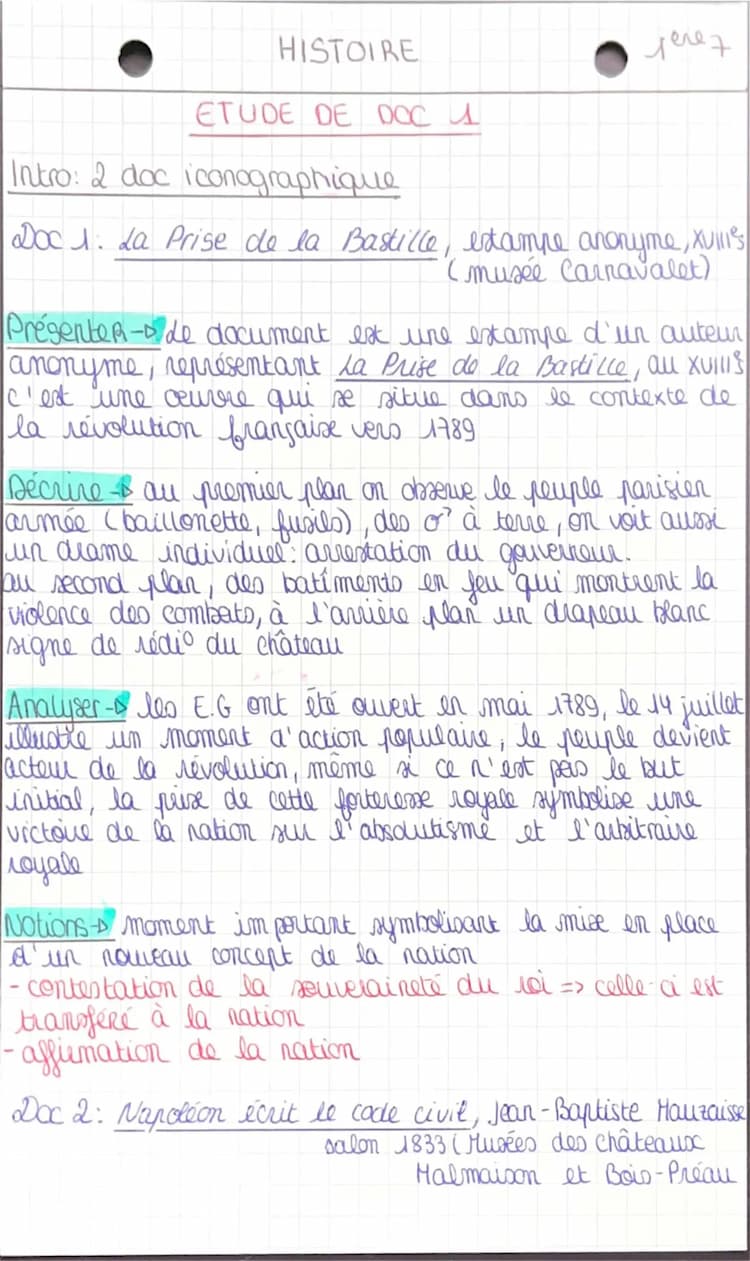 HISTOIRE
1ere 7
ETUDE DE DOC 1
Intro: 2 doc iconographique
Doc 1: La Prise de la Bastille, estampe anonyme, XVIIIes
(musée Carnavalet)
Présenter → Le document est une estampe d'un auteur
anonyme, représentant La Prise de la Bastille, au XVIIIes
c'est une œuvre qui se situe dans le contexte de
la révolution française vers 1789
Décrire → au premier plan on observe le peuple parisien
armée (baillonette, fusils), des à terre, on voit aussi
un drame individuel: arrestation du gouverneur.
au second plan, des batîments en feu qui montrent la
violence des combats, à l'arrière plan un drapeau blanc
signe de rédi° du château
Analyser → les E.G ont été ouvert en mai 1789, le 14 juillet
illustre un moment d'action populaire, le peuple devient
acteur de la révolution, même si ce n'est pas le but
initial, la prise de cette forteresse royale symbolise une
victoire de la nation sur l'absolutisme et l'arbitraire
royale
Notions → moment important symbolisant la mise en place
d'un nouveau concept de la nation
- contestation de la souveraineté du roi => celle-ci est
transféré à la nation
- affirmation de la nation
Doc 2: Napoléon écrit le code civil, Jean-Baptiste Mauzaisse
salon 1833 (Musées des châteaux
Malmaison et Bois-Préau